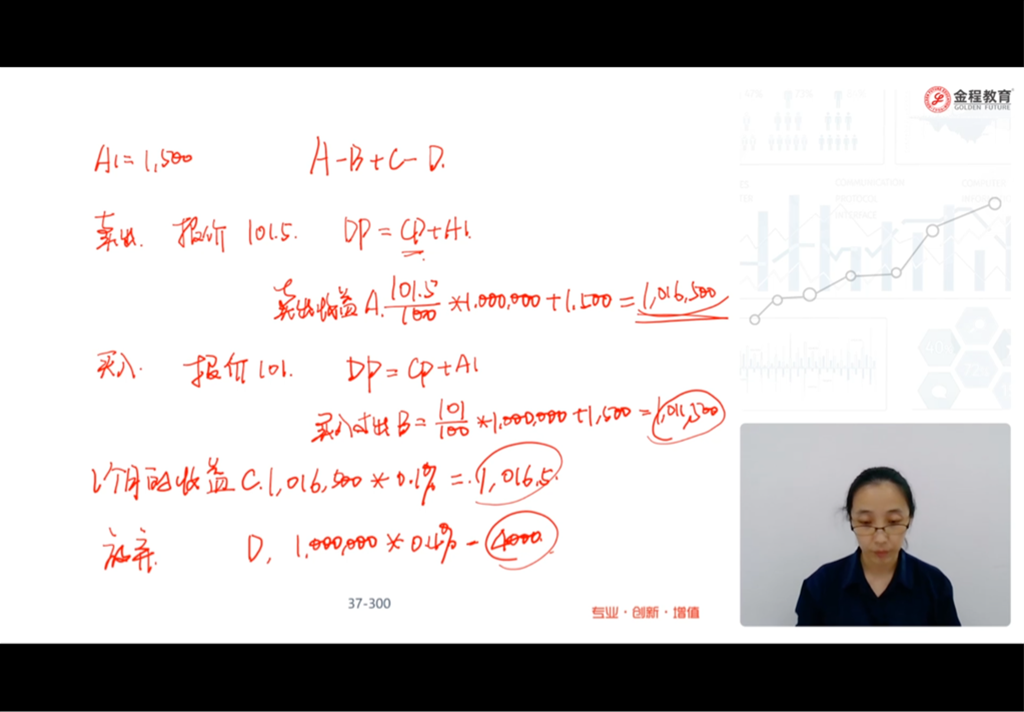 金程教育
GOLDEN FUTURE
AI = 1,500 A-B+C-D.
卖出. 报价 101.5. DP = CP+AI.
卖出收益 A. 101.5/100 *1.000,000 + 1.500 = 1,016,500
买入. 报价 101. DP = CP+AI
买入付出 B = 101/100 *1,000,000 + 1,500 = 1,011,500
1个月的收益 C. 1,016,500 * 0.1% = 1,016.5.
放弃. D. 1,000,000 * 0.4% = 4000
37-300
专业·创新·增值